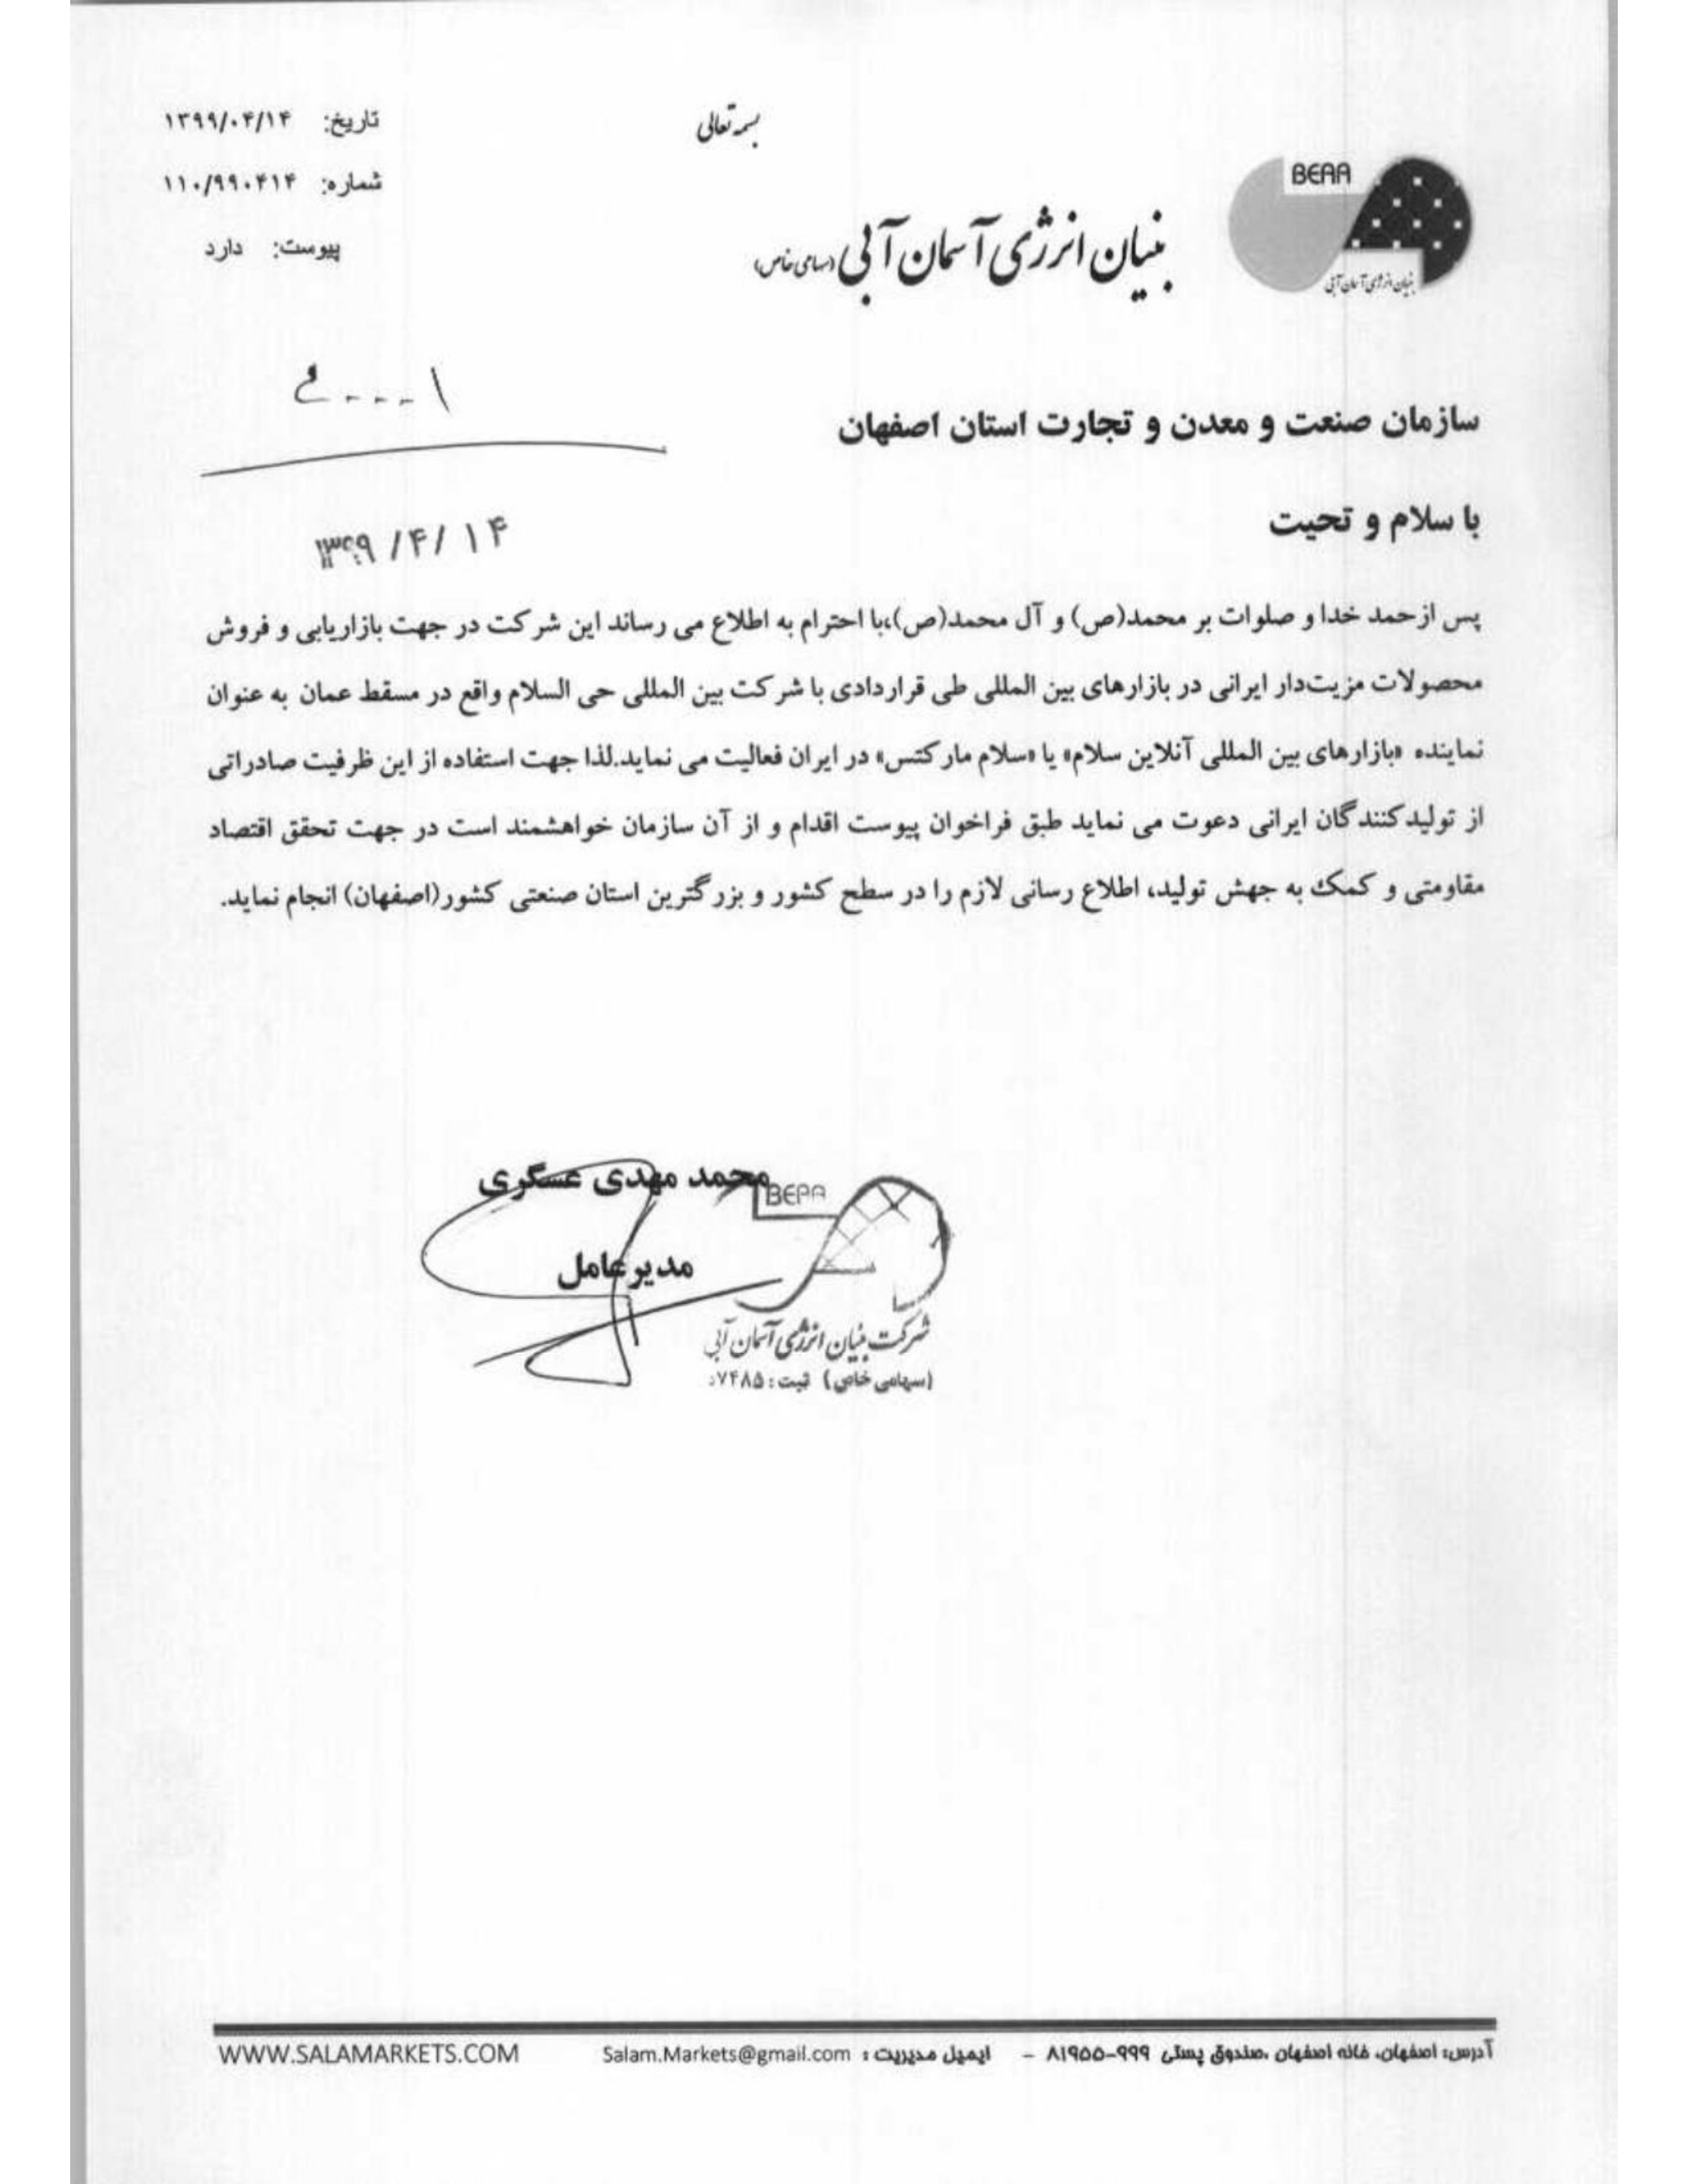 بسمه تعالی
تاریخ: ۱۳۹۹/۰۴/۱۴
شماره: ۱۱۰/۹۹۰۴۱۴
پیوست: دارد
BEAA
بنیان انرژی آسمان آبی
بنیان انرژی آسمان آبی (سهامی خاص)
سازمان صنعت و معدن و تجارت استان اصفهان
با سلام و تحیت
۱۳۹۹/۴/۱۴
پس ازحمد خدا و صلوات بر محمد(ص) و آل محمد(ص)،با احترام به اطلاع می رساند این شرکت در جهت بازاریابی و فروش
محصولات مزیت‌دار ایرانی در بازارهای بین المللی طی قراردادی با شرکت بین المللی حی السلام واقع در مسقط عمان به عنوان
نماینده «بازارهای بین المللی آنلاین سلام» یا «سلام مارکتس» در ایران فعالیت می نماید.لذا جهت استفاده از این ظرفیت صادراتی
از تولیدکنندگان ایرانی دعوت می نماید طبق فراخوان پیوست اقدام و از آن سازمان خواهشمند است در جهت تحقق اقتصاد
مقاومتی و کمک به جهش تولید، اطلاع رسانی لازم را در سطح کشور و بزرگترین استان صنعتی کشور(اصفهان) انجام نماید.
محمد مهدی عسگری
مدیرعامل
BEAA
شرکت بنیان انرژی آسمان آبی
(سهامی خاص) ثبت:
آدرس: اصفهان، خانه اصفهان ،صندوق پستی ۹۹۹-۸۱۹۵۵ – ایمیل مدیریت : Salam.Markets@gmail.com WWW.SALAMARKETS.COM